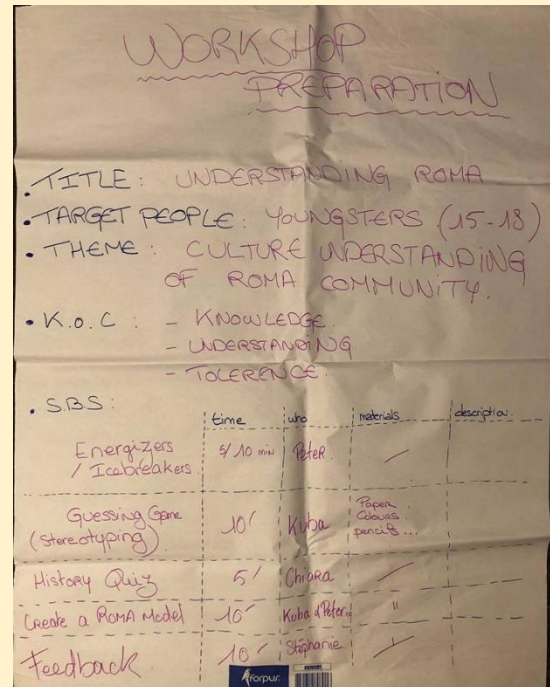 WORKSHOP
PREPARATION
• TITLE: UNDERSTANDING ROMA
• TARGET PEOPLE: YOUNGSTERS (15-18)
• THEME: CULTURE UNDERSTANDING
OF ROMA COMMUNITY.
• K.O.C: - KNOWLEDGE
- UNDERSTANDING
- TOLERENCE
• S.B.S:
time who materials description
Energizers
/ Icebreakers 5/10 min Peter /
Guessing Game
(stereotyping) 10' Kuba Paper
Colours
pencils...
History Quiz 5' Chiara /
Create a ROMA Model 10' Kuba & Peter "
Feedback 10' Stéphanie /
forpus